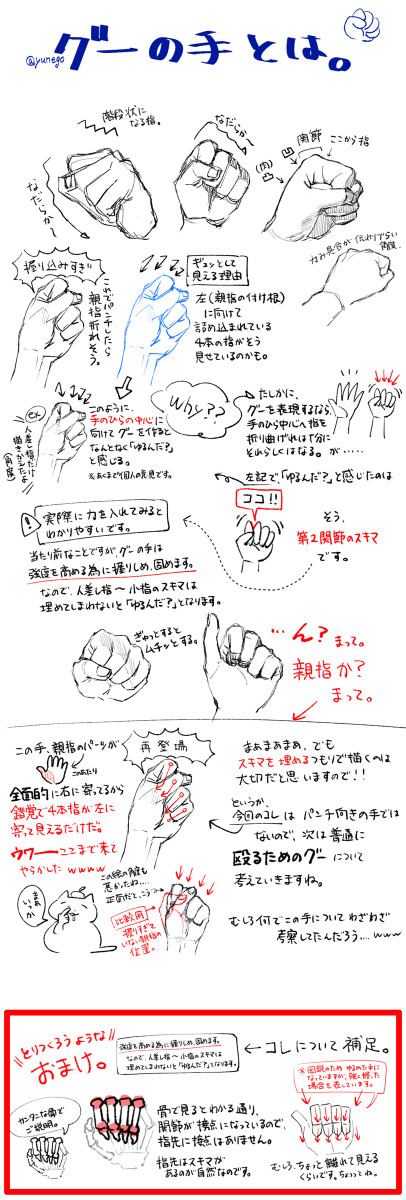 グーの手とは。
@yunego
階段状に
なる指。
なだらか〜
なだらか〜
関節
ここから指
(肉)
力み具合が伝わりづらい
角度。
握り込みすぎ
これでパンチしたら
親指折れそう。
ギュッとして
見える理由
左(親指の付け根)
に向けて
詰め込まれている
4本の指がそう
見せているのかも。
ex.
人差し指だけ
描きかえたよ
(角度)
このように、
手のひらの中心に
向けてグーを作ると
なんとなく「ゆるんだ?」
と感じる。
※あくまで個人の意見です。
Why??
たしかに、
グーを表現するなら、
手のひら中心へ指を
折り曲げれば十分に
それらしくはなる。が……
左記で、「ゆるんだ?」と感じたのは
ココ!!
そう、
第2関節のスキマ
です。
実際に力を入れてみると
わかりやすいです。
当たり前なことですが、グーの手は
強度を高める為に握りしめ、固めます。
なので、人差し指〜小指のスキマは
埋めてしまわないと「ゆるんだ?」となります。
ぎゅっとすると
ムチッとする。
…ん?
まって。
親指か?
まって。
この手、親指のパーツが
このあたり
全面的に右に寄ってるから
錯覚で4本指が左に
寄って見えるだけだ。
ウワーーここまで来て
やらかしたwwww
まあ
いっか
再登場
この絵の角度も
悪かったね…
正面だと、こう
比較用
握りすぎて
いない親指の
位置。
まぁまぁまぁ、でも
スキマを埋めるつもりで描くのは
大切だと思いますので!!
というか、
今回のコレはパンチ向きの手では
ないので、次は普通に
殴るためのグーについて
考えていきますね。
むしろ何でこの手についてわざわざ
考察してたんだろう….www
とりつくろうような
おまけ。
強度を高める為に握りしめ、固めます。
なので、人差し指〜小指のスキマは
埋めてしまわないと「ゆるんだ?」となります。
←コレについて補足。
カンタンな骨で
ご説明。
骨で見るとわかる通り、
関節が接点になっているので、
指先に接点はありません。
指先はスキマが
あるのが自然なのです。
※図説のため、ゆるめた手に
なっていますが、強く握った
場合を表しています。
むしろ、ちょっと離れて見える
くらいです。ちょっとね。